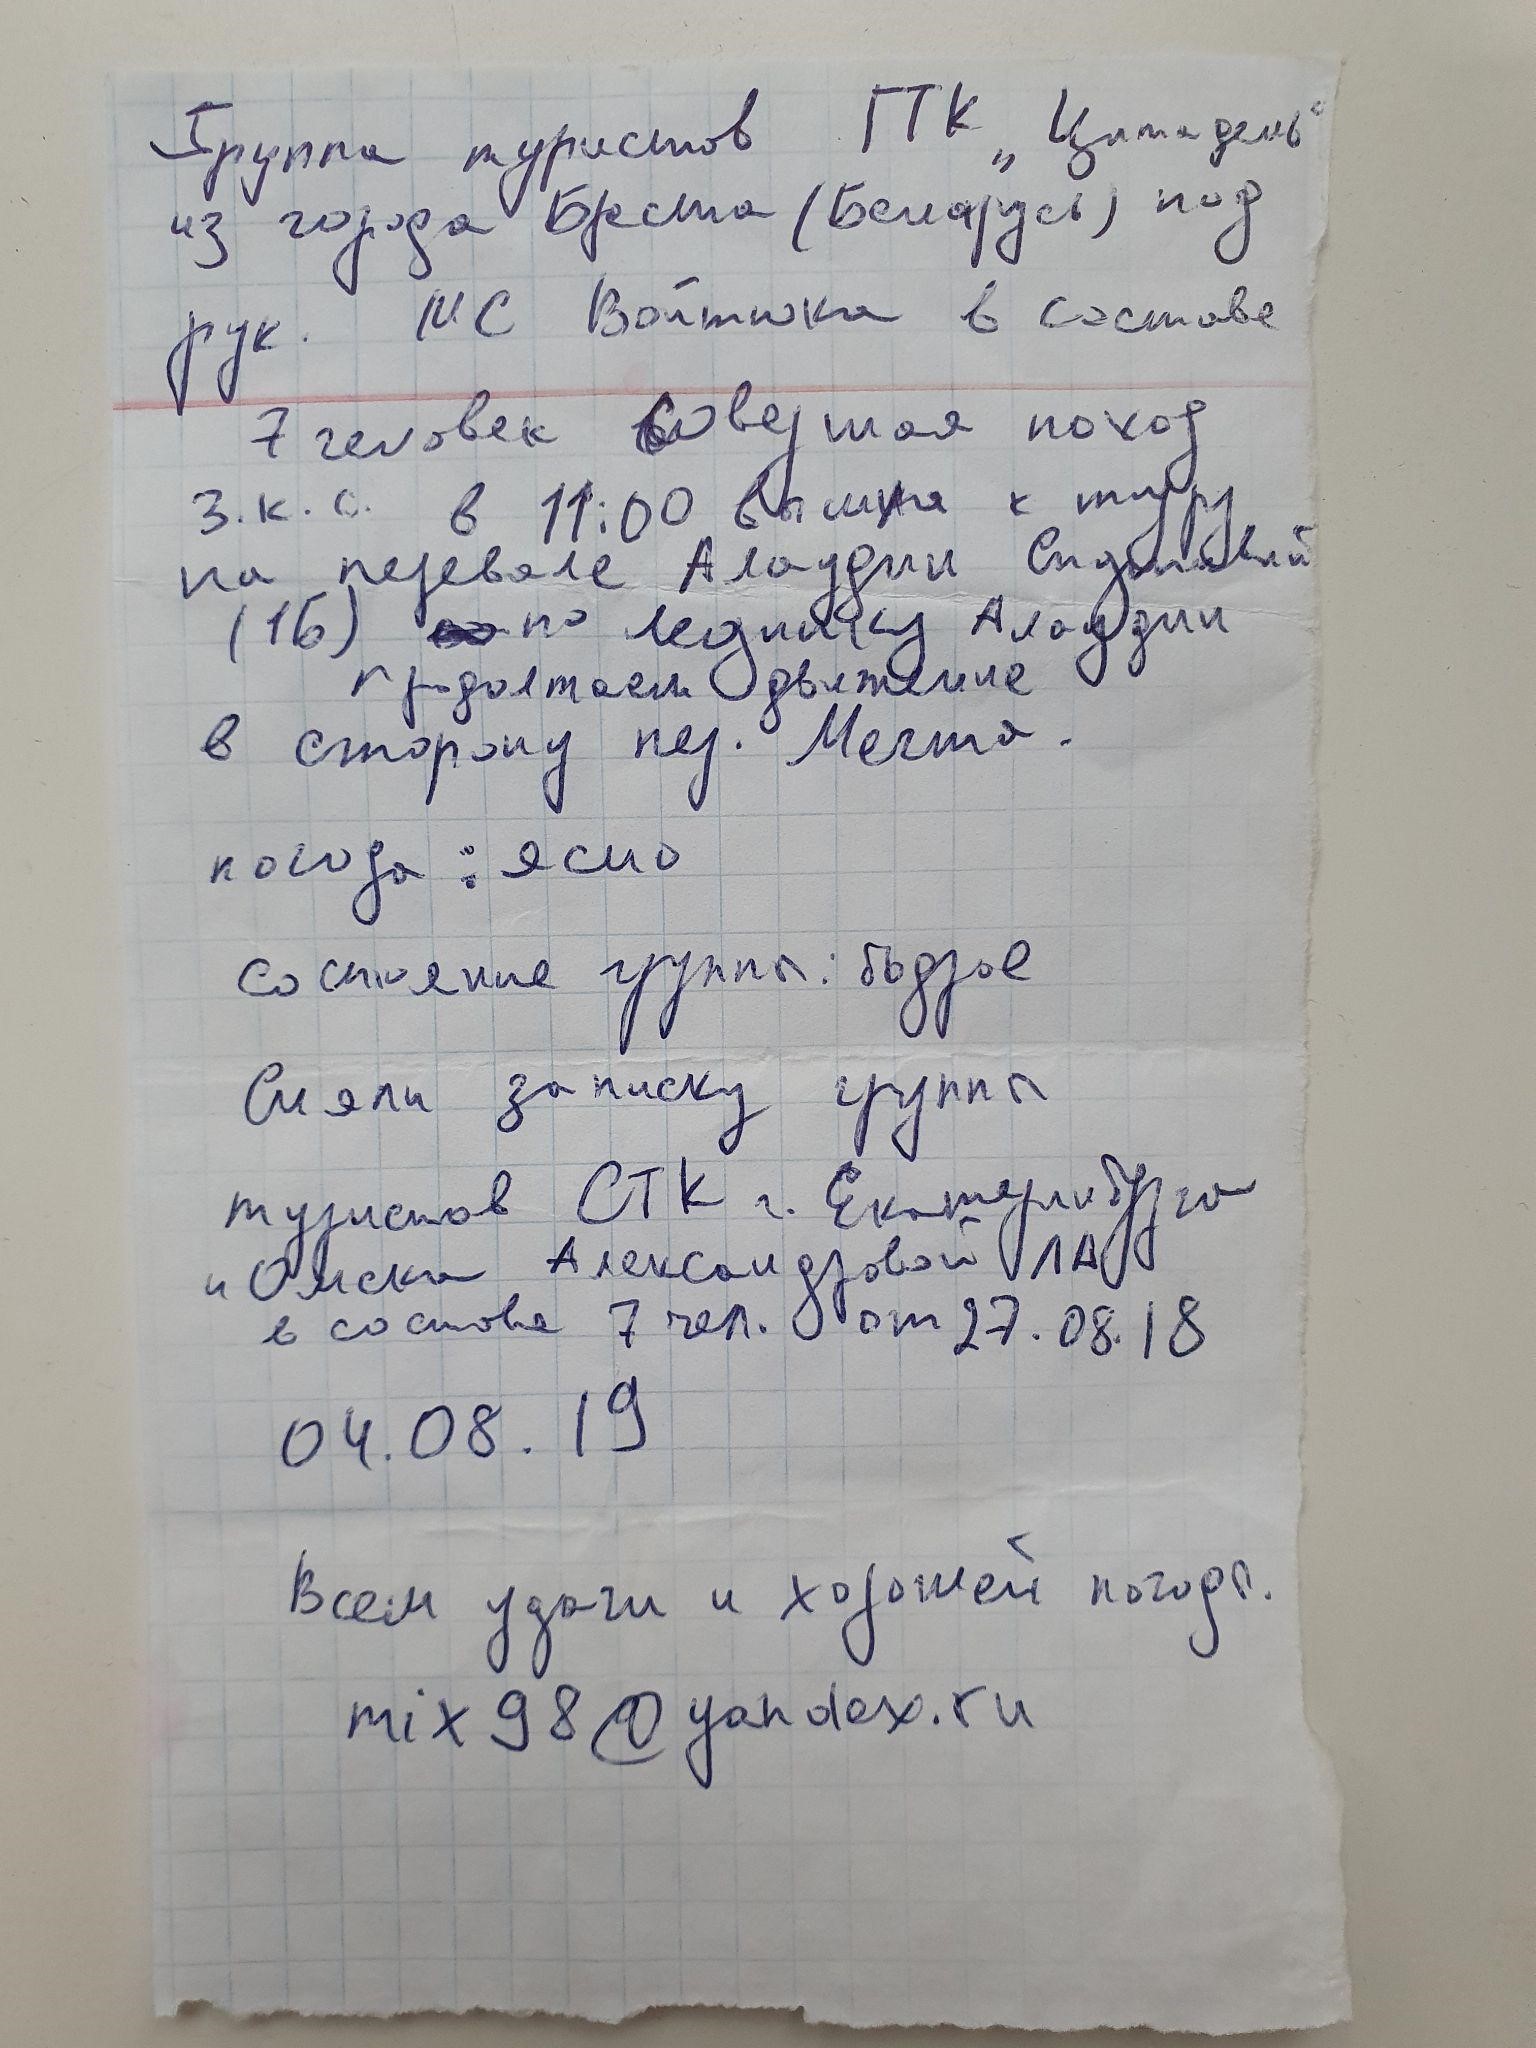 Группа туристов ГТК „Цитадель“
из города Бреста (Беларусь) под
рук. МС Войтюка в составе
7 человек совершая поход
3.к.с. в 11:00 вышла к туру
на перевале Алаудин
(1Б) по леднику Алаудин
продолжаем движение
в сторону пер. Мечта.
погода: ясно
состояние группы: бодрое
Сняли записку группы
туристов СТК г. Екатеринбурга
и Омска Александровой ЛА
в составе 7 чел. от 27.08.18
04.08.19
Всем удачи и хорошей погоды.
mix98@yandex.ru